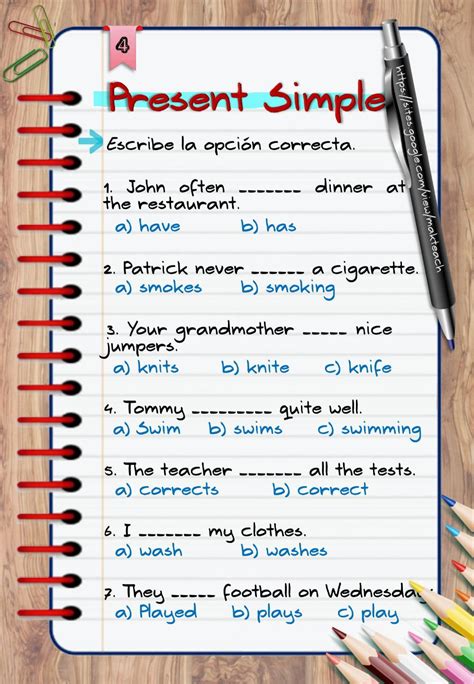 4
Present Simple
Escribe la opción correcta.
1. John often _______ dinner at
the restaurant.
a) have b) has
2. Patrick never ______ a cigarette.
a) smokes b) smoking
3. Your grandmother _____ nice
jumpers.
a) knits b) knite c) knife
4. Tommy _________ quite well.
a) Swim b) swims c) swimming
5. The teacher _______ all the tests.
a) corrects b) correct
6. I _______ my clothes.
a) wash b) washes
7. They _____ football on Wednesday.
a) Played b) plays c) play
https://sites.google.com/view/makteach